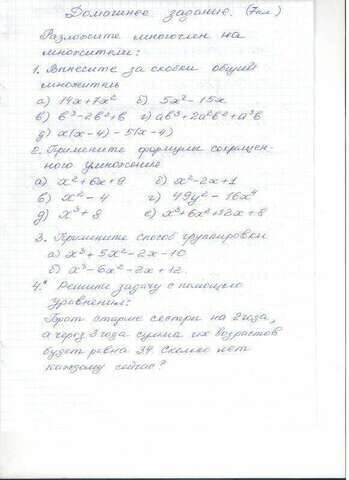 Домашнее задание. (7кл)
Разложите многочлен на
множители:
1. Вынесите за скобки общий
множитель
а) 14x+7x² б) 5x²-15x
в) b³-2b²+b г) ab³+2a²b²+a³b
д) x(x-4)-5(x-4)
2. Примените формулы сокращен-
ного умножения
а) x²+6x+9 б) x²-2x+1
в) x²-4 г) 49y²-16x⁴
д) x³+8 е) x³+6x²+12x+8
3. Примените способ группировки
а) x³+5x²-2x-10
б) x³-6x²-2x+12.
4.* Решите задачу с помощью
уравнения:
Брат старше сестры на 2 года,
а через 3 года сумма их возрастов
будет равна 34. Сколько лет
каждому сейчас?